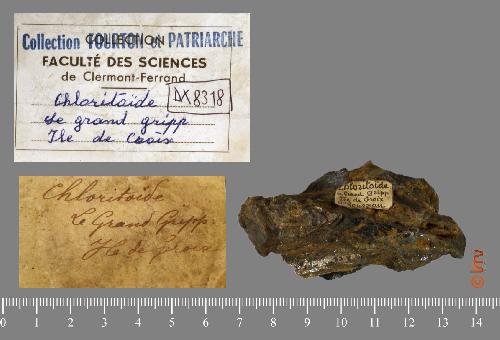 COLLECTION
Collection TOURTON et PATRIARCHE
FACULTÉ DES SCIENCES
de Clermont-Ferrand
Chloritoïde
DX 8318
Le grand gripp
Ile de Croix
Chloritoïde
Le Grand Gripp
Ile de
Chloritoïde
Le Grand Gripp
Ile de Croix
0 1 2 3 4 5 6 7 8 9 10 11 12 13 14